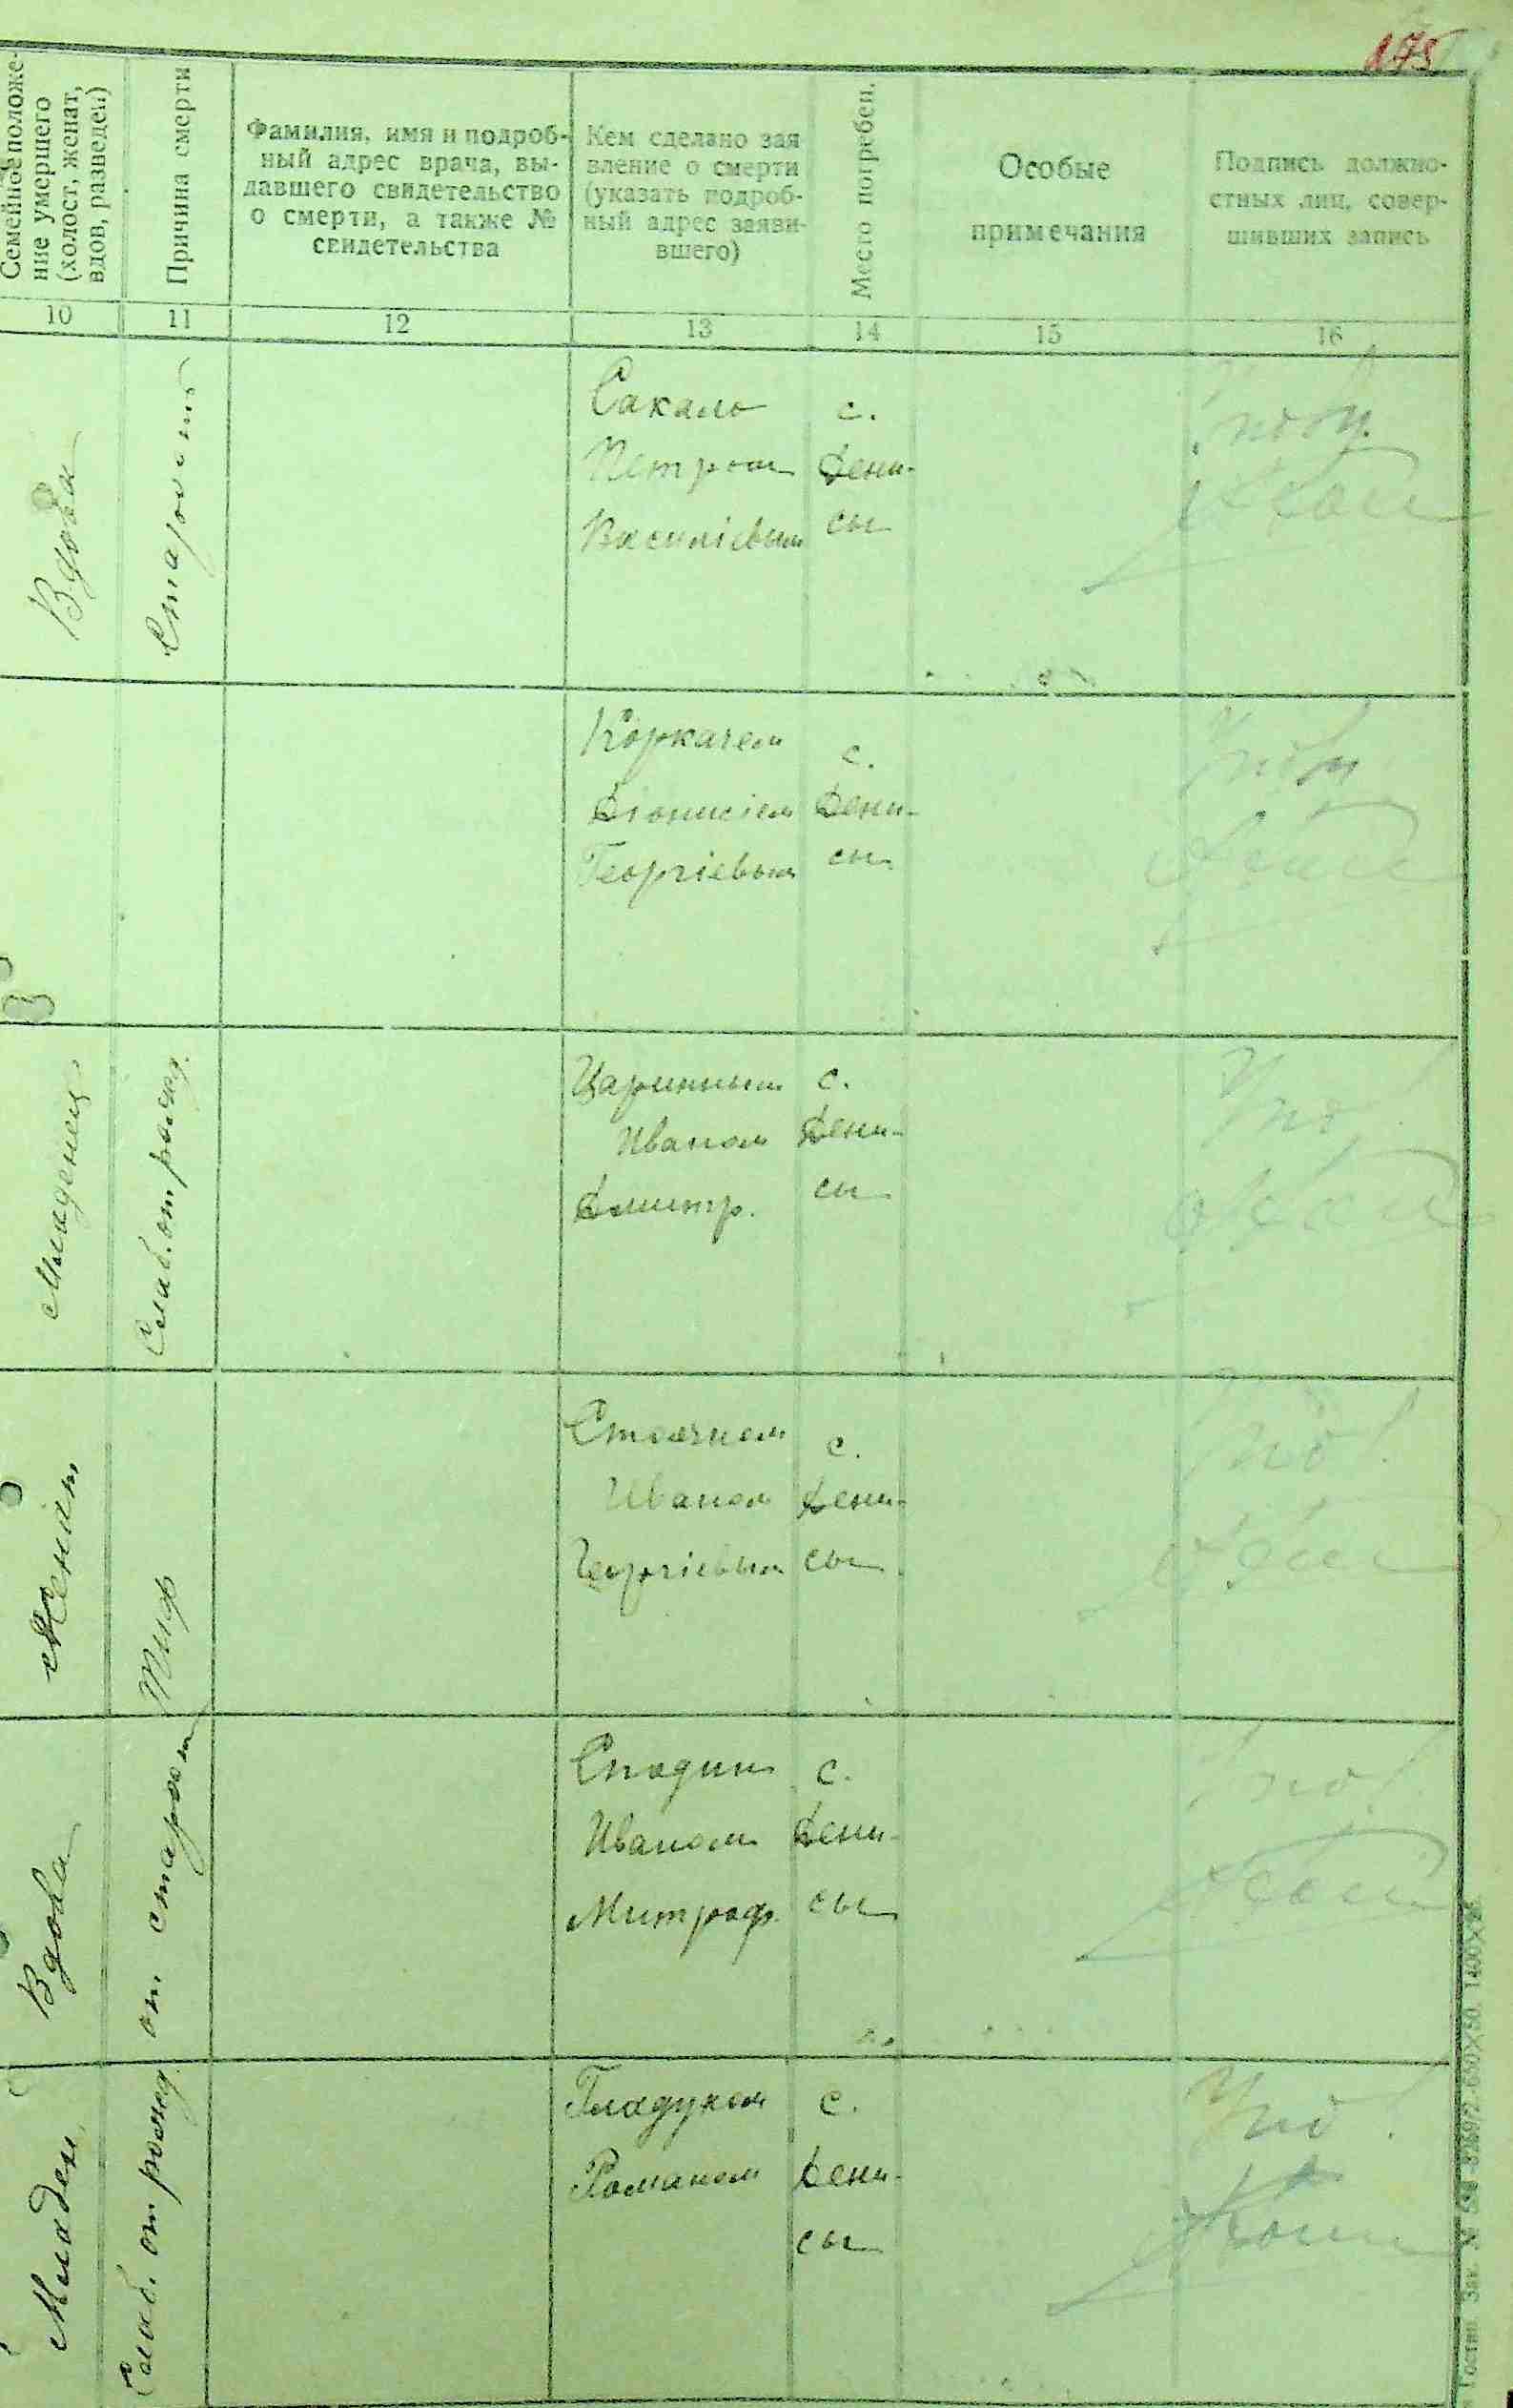 175
Семейное положе-
ние умершего
(холост, женат,
вдов, разведен)
Причина смерти
Фамилия, имя и подроб-
ный адрес врача, вы-
давшего свидетельство
о смерти, а также №
свидетельства
Кем сделано зая
вление о смерти
(указать подроб-
ный адрес заяви-
вшего)
Место погребен.
Особые
примечания
Подпись должно-
стных лиц, совер-
шивших запись
10 11 12 13 14 15 16
Вдова
Старость
Сакало
Петром
Василіевым
с.
Дени-
сы
Коркачем
Діонисіем
Георгіевым
с.
Дени-
сы
Младенец
Слаб. от рожд.
Царинным
Иваном
Дмитр.
с.
Дени-
сы
Женат
Тиф
Иваном
Георгіевым
с.
Дени-
сы
Вдова
от старост
Спадин
Иваном
Митроф.
с.
Дени-
сы
Младен.
Слаб. от рожд.
Гладуком
Романом
с.
Дени-
сы